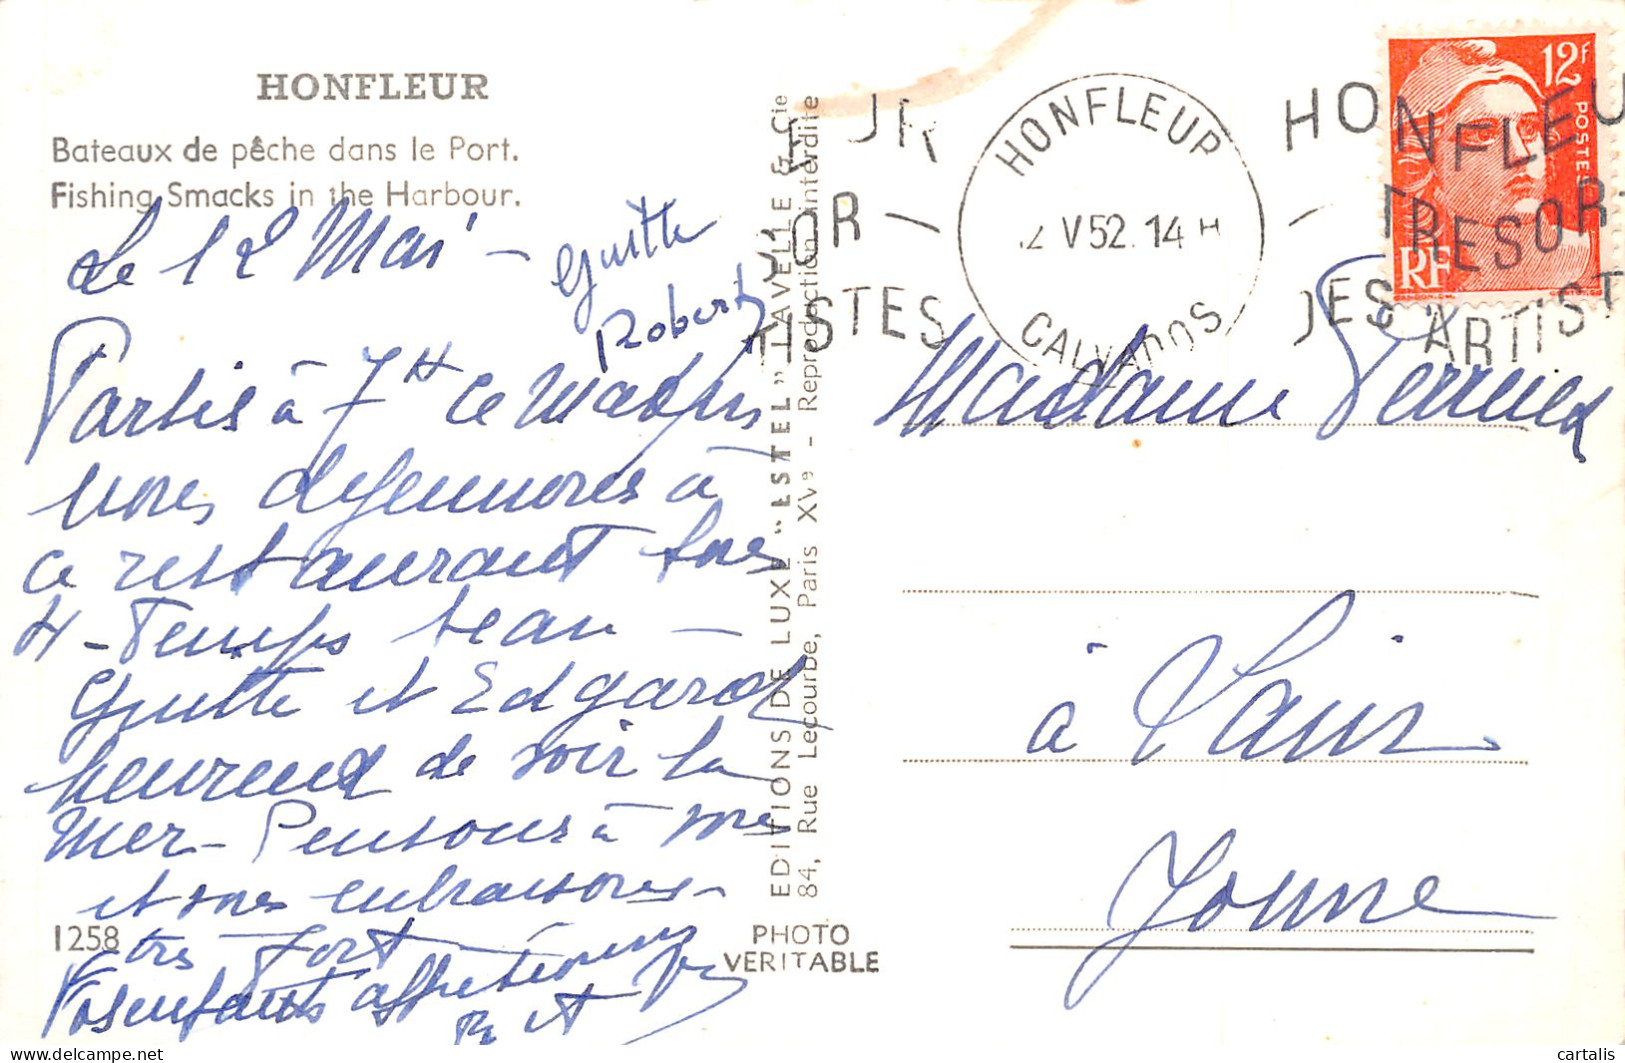 HONFLEUR
Bateaux de pêche dans le Port.
Fishing Smacks in the Harbour.
Le 12 Mai -
Guitte
Robert
Partis à 7H ce Matin
nous déjeunons à
ce restaurant
4 - Temps beau -
Guitte et Edgard
heureux de voir la
Mer - Pensons à
et embrassons
très fort
Vos enfants affectionnés
R et
1258
EDITIONS DE LUXE "ESTEL" LAVELLE & Cie
84, Rue Lecourbe, Paris XVe - Reproduction interdite
PHOTO
VERITABLE
EUR
D'OR
TISTES
HONFLEUR
12 V 52. 14 H
CALVADOS
HONFLEU
TRESOR
DES ARTIST
12F
POSTES
RF
Madame Perreux
à
Yonne
cartalis
delcampe.net